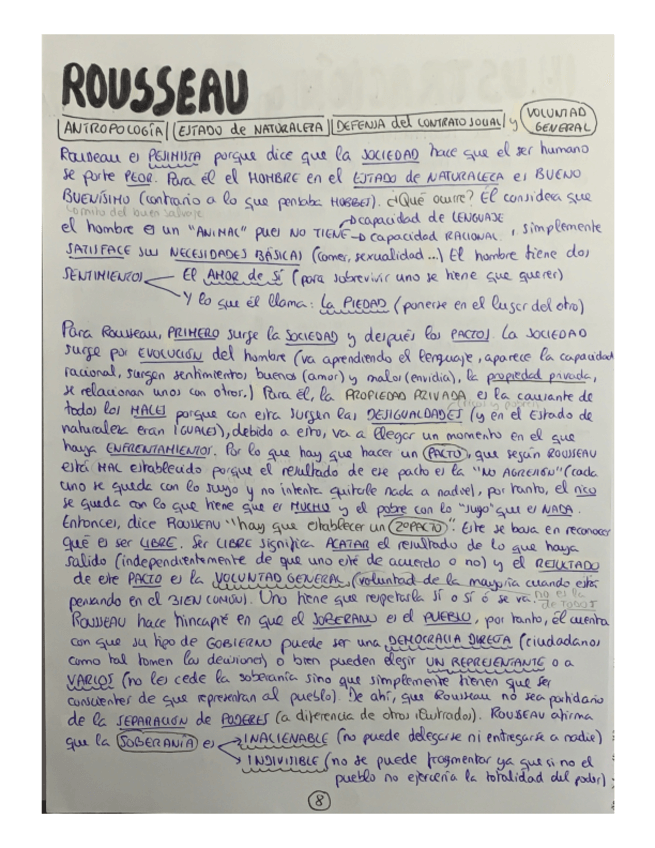 ROUSSEAU
ANTROPOLOGÍA ESTADO de NATURALEZA DEFENSA del CONTRATO SOCIAL y VOLUNTAD GENERAL
Rousseau es PESIMISTA porque dice que la SOCIEDAD hace que el ser humano
se porte PEOR. Para él el HOMBRE en el ESTADO de NATURALEZA es BUENO
BUENÍSIMO (contrario a lo que pensaba HOBBES). ¿Qué ocurre? Él considera que
mito del buen salvaje
capacidad de LENGUAJE
el hombre es un "ANIMAL" pues NO TIENE capacidad RACIONAL, simplemente
SATISFACE sus NECESIDADES BÁSICAS (comer, sexualidad...) El hombre tiene dos
SENTIMIENTOS El AMOR de SÍ (para sobrevivir uno se tiene que querer)
Y lo que él llama: la PIEDAD (ponerse en el lugar del otro)
Para Rousseau, PRIMERO surge la SOCIEDAD y después los PACTOS. La SOCIEDAD
surge por EVOLUCIÓN del hombre (va aprendiendo el lenguaje, aparece la capacidad
racional, surgen sentimientos buenos (amor) y malos (envidia), la propiedad privada,
se relacionan unos con otros.) Para él, la PROPIEDAD PRIVADA es la causante de
todos los MALES porque con esta surgen las DESIGUALDADES (y en el Estado de
naturaleza eran IGUALES), debido a esto, va a llegar un momento en el que
haya ENFRENTAMIENTOS. Por lo que hay que hacer un PACTO, que según ROUSSEAU
está MAL establecido porque el resultado de ese pacto es la "NO AGRESIÓN" (cada
uno se queda con lo suyo y no intenta quitarle nada a nadie), por tanto, el rico
se queda con lo que tiene que es MUCHO y el pobre con lo "suyo" que es NADA.
Entonces, dice ROUSSEAU "hay que establecer un 2ºPACTO". Este se basa en reconocer
qué es ser LIBRE. Ser LIBRE significa ACATAR el resultado de lo que haya
salido (independientemente de que uno esté de acuerdo o no) y el RESULTADO
de este PACTO es la VOLUNTAD GENERAL (voluntad de la mayoría cuando están
pensando en el BIEN COMÚN). Uno tiene que respetarla SÍ o SÍ ó se va. no es la de TODOS
ROUSSEAU hace hincapié en que el SOBERANO es el PUEBLO, por tanto, él cuenta
con que su tipo de GOBIERNO puede ser una DEMOCRACIA DIRECTA (ciudadanos
como tal tomen las decisiones) o bien pueden elegir UN REPRESENTANTE o a
VARIOS (no les cede la soberanía sino que simplemente tienen que ser
conscientes de que representan al pueblo). De ahí, que Rousseau no sea partidario
de la SEPARACIÓN de PODERES (a diferencia de otros ilustrados). ROUSSEAU afirma
que la SOBERANÍA es INALIENABLE (no puede delegarse ni entregarse a nadie)
INDIVISIBLE (no se puede fragmentar ya que si no el
pueblo no ejercería la totalidad del poder)
8